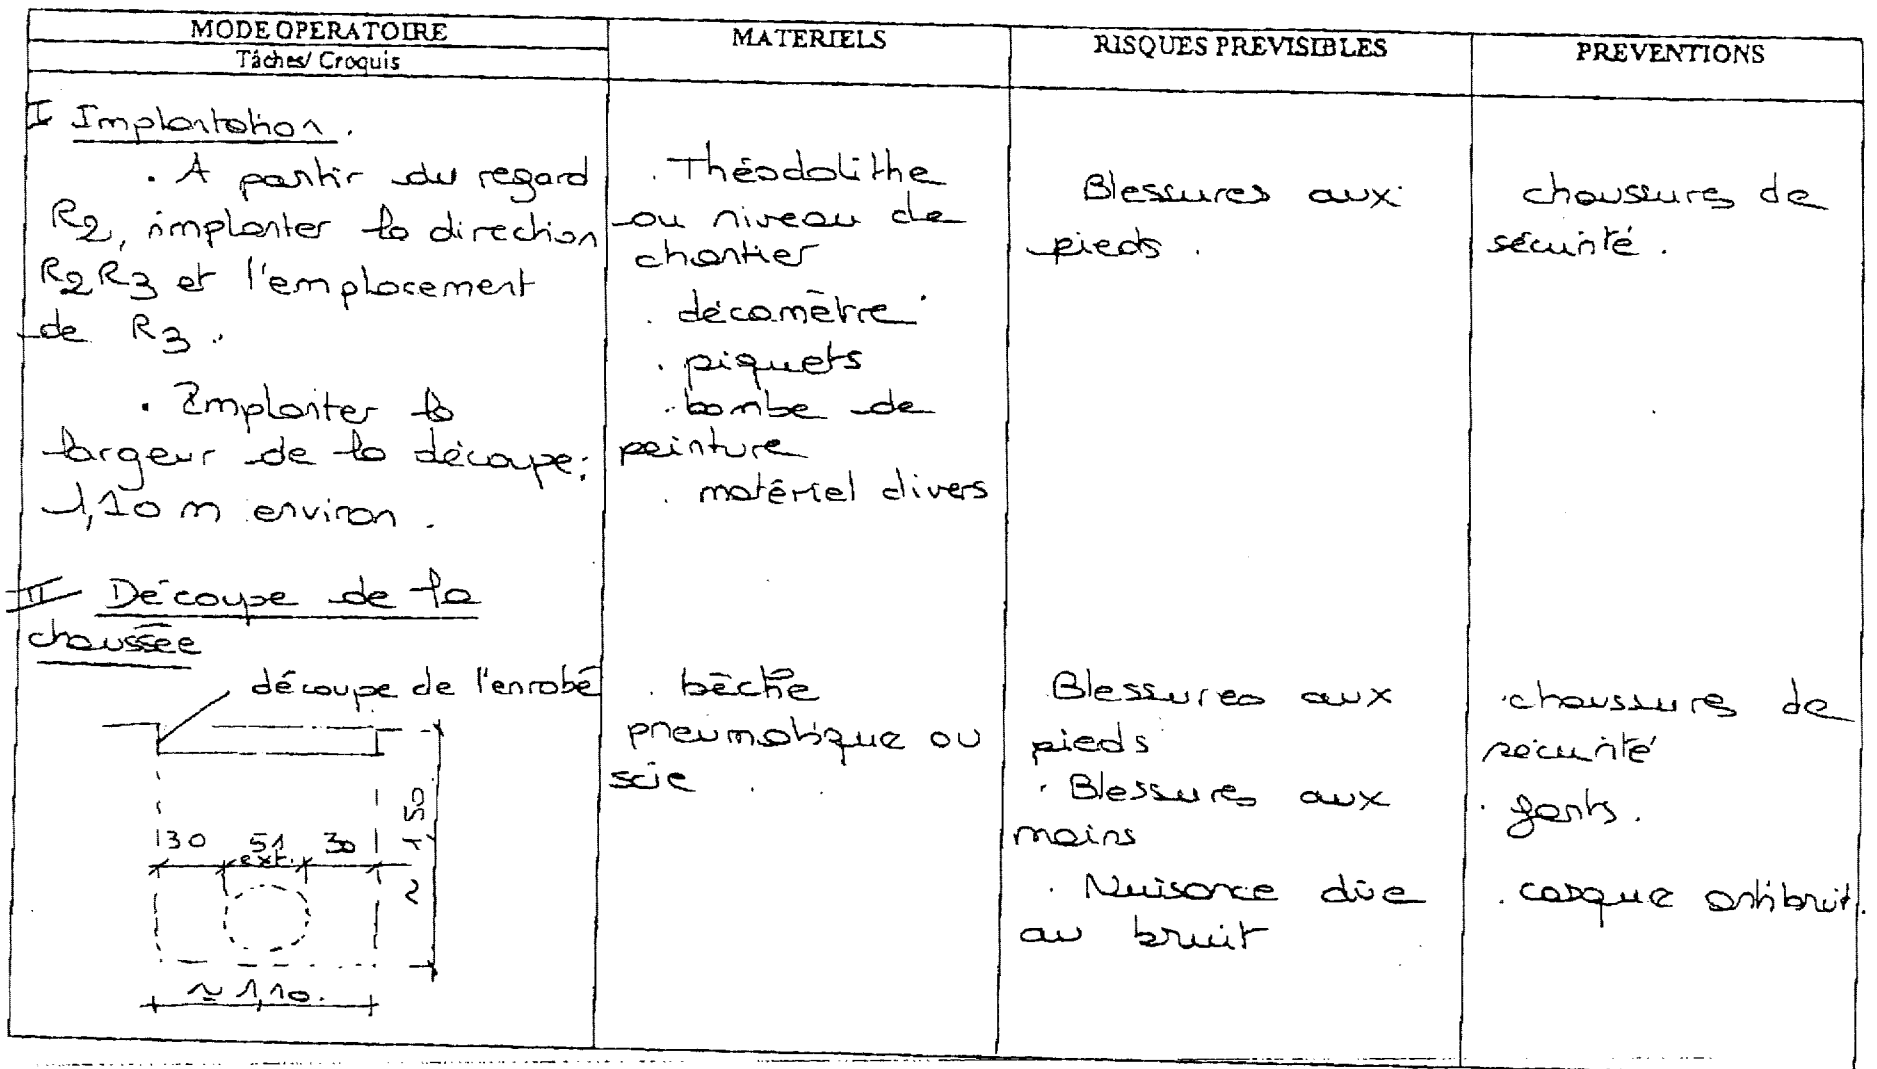 MODE OPERATOIRE
Tâches/ Croquis
MATERIELS
RISQUES PREVISIBLES
PREVENTIONS
I Implantation.
. A partir du regard
R2, implanter la direction
R2R3 et l'emplacement
de R3.
. Implanter la
largeur de la découpe:
1,10 m environ.
. Théodolithe
ou niveau de
chantier
. décamètre
. piquets
. bombe de
peinture
. matériel divers
Blessures aux
pieds.
chaussures de
sécurité.
II Découpe de la
chaussée
découpe de l'enrobé
30
51
ext.
30
~ 1,50
≈ 1,10.
. bêche
pneumatique ou
scie.
Blessures aux
pieds
. Blessures aux
mains
. Nuisance dûe
au bruit
. chaussures de
sécurité
. gants.
. casque antibruit.